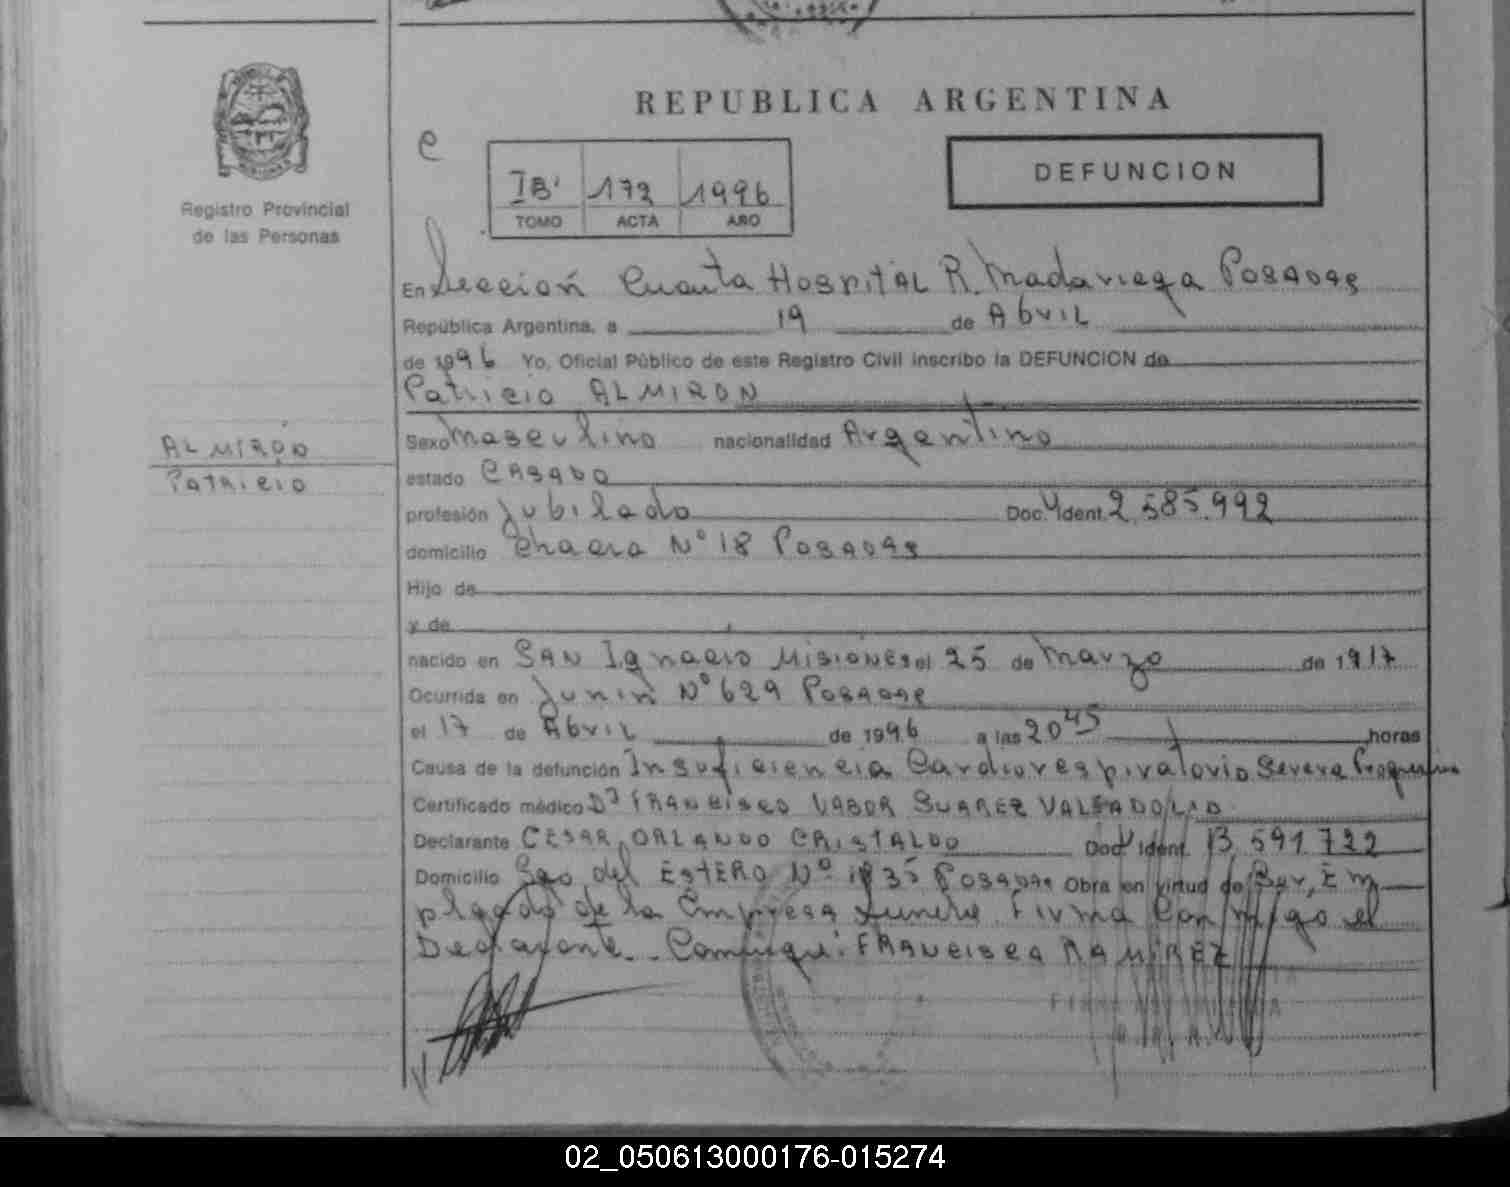 REPUBLICA ARGENTINA
e
IB' 172 1996
TOMO ACTA AÑO
DEFUNCION
Registro Provincial
de las Personas
En Sección Cuarta Hospital R. Madariaga Posadas
República Argentina, a 19 de Abril
de 1996 Yo, Oficial Público de este Registro Civil inscribo la DEFUNCION de
Patricio ALMIRON
ALMIRON
Patricio
Sexo Masculino nacionalidad Argentino
estado Casado
profesión Jubilado Doc. Ident. 2.585.992
domicilio Chacra Nº 18 Posadas
Hijo de
y de
nacido en San Ignacio Misiones el 25 de Marzo de 1917
Ocurrida en Junin Nº 629 Posadas
el 17 de Abril de 1996 a las 20 45 horas
Causa de la defunción Insuficiencia Cardiorespiratorio Severa Progresiva
Certificado médico Dr FRANCISCO SUAREZ VALLADOLID
Declarante CESAR ORLANDO CRISTALDO Doc Ident. 13.591.722
Domicilio Sgo del ESTERO Nº 1835 Posadas Obra en virtud de Ser, Em
pleado de la Empresa Funebre. Firma Conmigo el
Declarante. Conyuge: FRANCISCA RAMIREZ
02_050613000176-015274